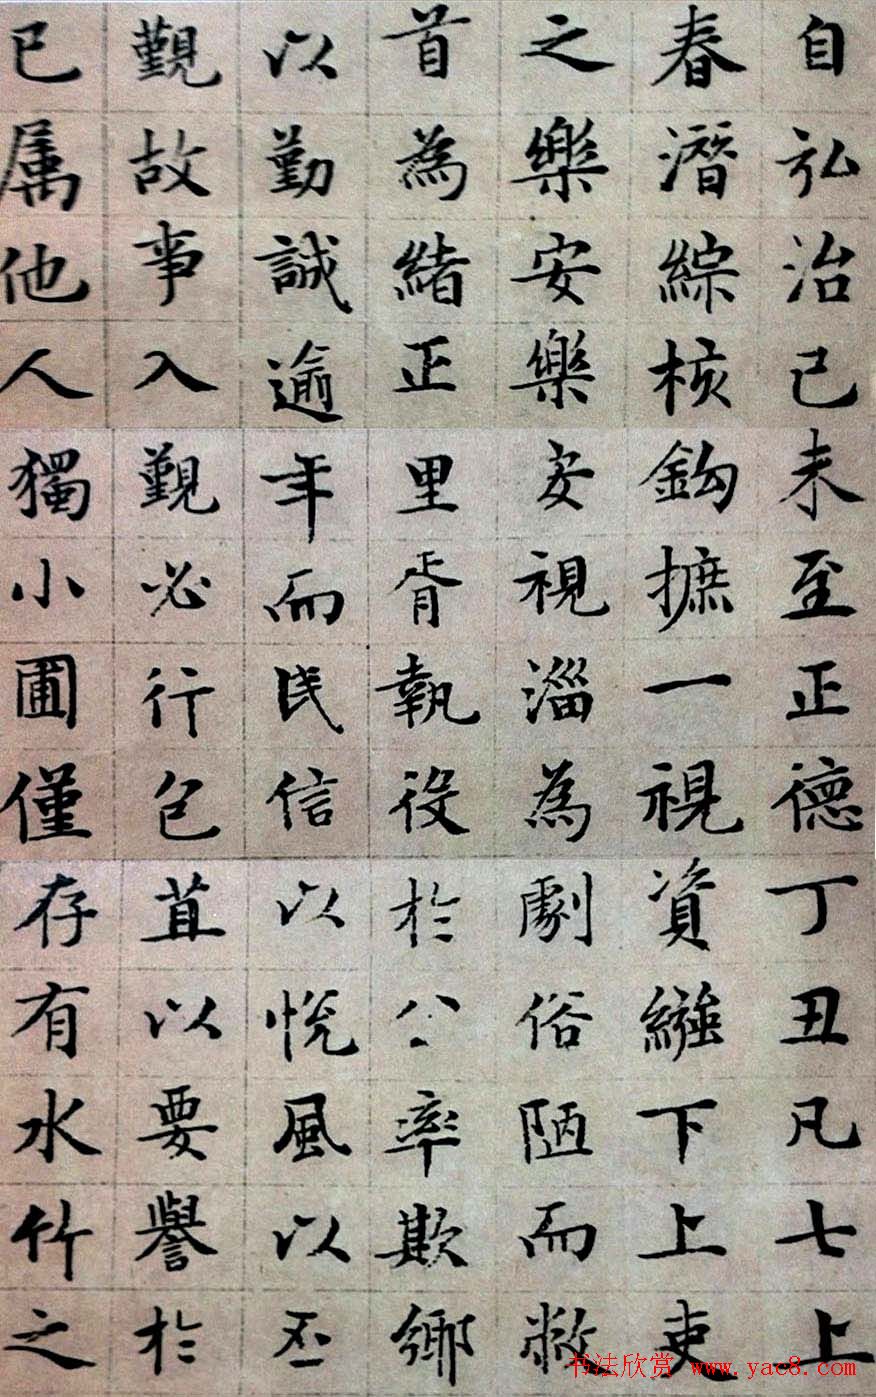 自弘治己未至正德丁丑凡七上
春潛綜核鈎摭一視資繼下上吏
之樂安樂安視淄為劇俗陋而敝
首為緒正里胥執役於公率欺鄉
以勤誠逾年而民信以悅風以丕
觀故事入觀必行包苴以要譽於
已属他人獨小圃僅存有水竹之
书法欣赏 www.yac8.com